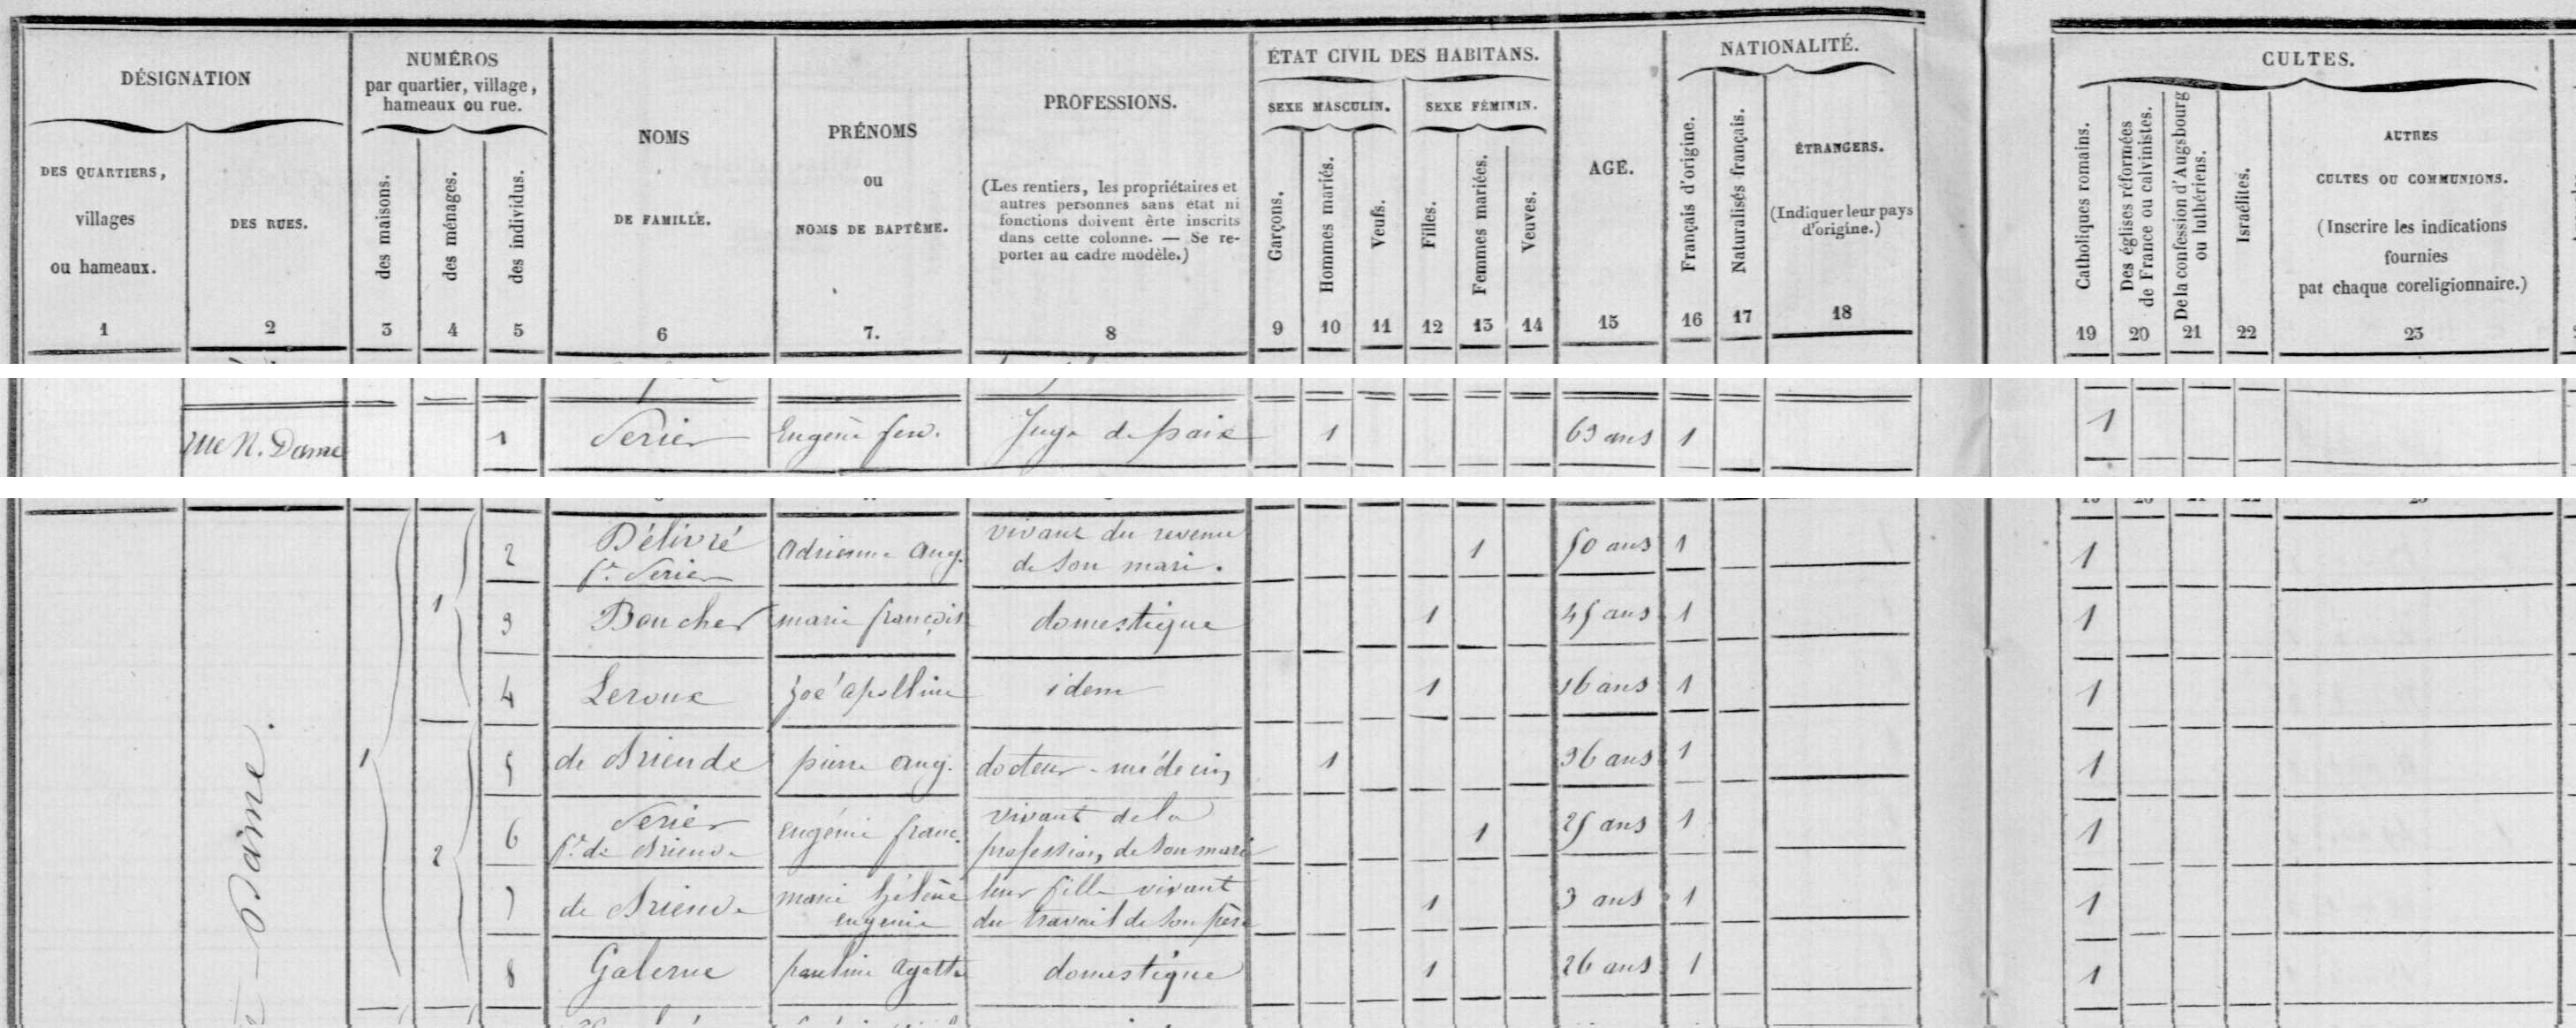 DÉSIGNATION
DES QUARTIERS,
villages
ou hameaux.
1
DES RUES.
2
NUMÉROS
par quartier, village,
hameaux ou rue.
des maisons.
3
des ménages.
4
des individus.
5
NOMS
DE FAMILLE.
6
PRÉNOMS
ou
NOMS DE BAPTÊME.
7.
PROFESSIONS.
(Les rentiers, les propriétaires et
autres personnes sans état ni
fonctions doivent êrte inscrits
dans cette colonne. — Se re-
porter au cadre modèle.)
8
ÉTAT CIVIL DES HABITANS.
SEXE MASCULIN.
Garçons.
9
Hommes mariés.
10
Veufs.
11
SEXE FÉMININ.
Filles.
12
Femmes mariées.
13
Veuves.
14
AGE.
15
NATIONALITÉ.
Français d'origine.
16
Naturalisés français.
17
ÉTRANGERS.
(Indiquer leur pays
d'origine.)
18
CULTES.
Catholiques romains.
19
Des églises réformées
de France ou calvinistes.
20
De la confession d'Augsbourg
ou luthériens.
21
Israélites.
22
AUTRES
CULTES OU COMMUNIONS.
(Inscrire les indications
fournies
par chaque coreligionnaire.)
23
rue N. Dame 1 Serier Eugène Juge de paix 1 63 ans 1 1
Dame.
1
1
2 Délivré adrienne aug. vivant du revenu 1 50 ans 1 1
fe. Serier de son mari.
3 Boucher marie françoise domestique 1 45 ans 1 1
4 Leroux zoé apolline idem 1 16 ans 1 1
2
5 de Briende pierre aug. docteur-médecin 1 36 ans 1 1
6 Serier eugénie franc. vivant de la 1 25 ans 1 1
fe. de Briende profession de son mari
7 de Briende marie hélène leur fille vivant 1 3 ans 1 1
eugenie du travail de son père
8 Galerne pauline agathe domestique 1 26 ans 1 1